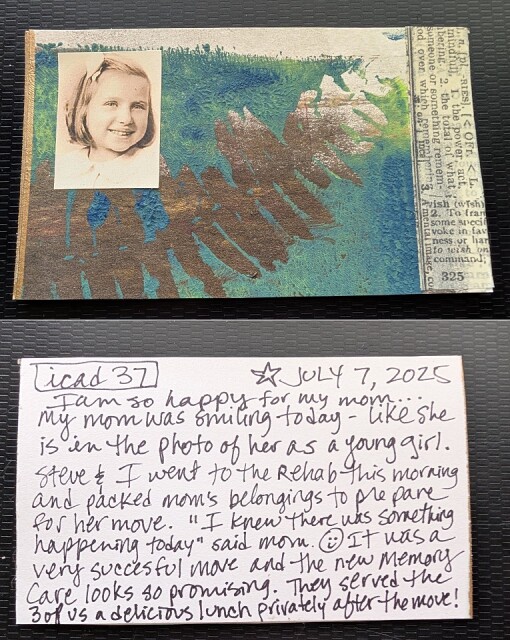 a. pl. -RIES), [< OFr. < L.
mindful], 1. the power, act,
bering. 2. the total of what
someone or something remem-
od over which
vish (wish)
2. To
some
voke in
ness or
to wish
command;
mental image,
325
icad 37
☆ JULY 7, 2025
I am so happy for my mom...
My mom was smiling today - like she
is in the photo of her as a young girl.
Steve & I went to the Rehab this morning
and packed mom's belongings to prepare
for her move. "I knew there was something
happening today" said mom. ☺ It was a
very succesful move and the new Memory
Care looks so promising. They served the
3 of us a delicious lunch privately after the move!